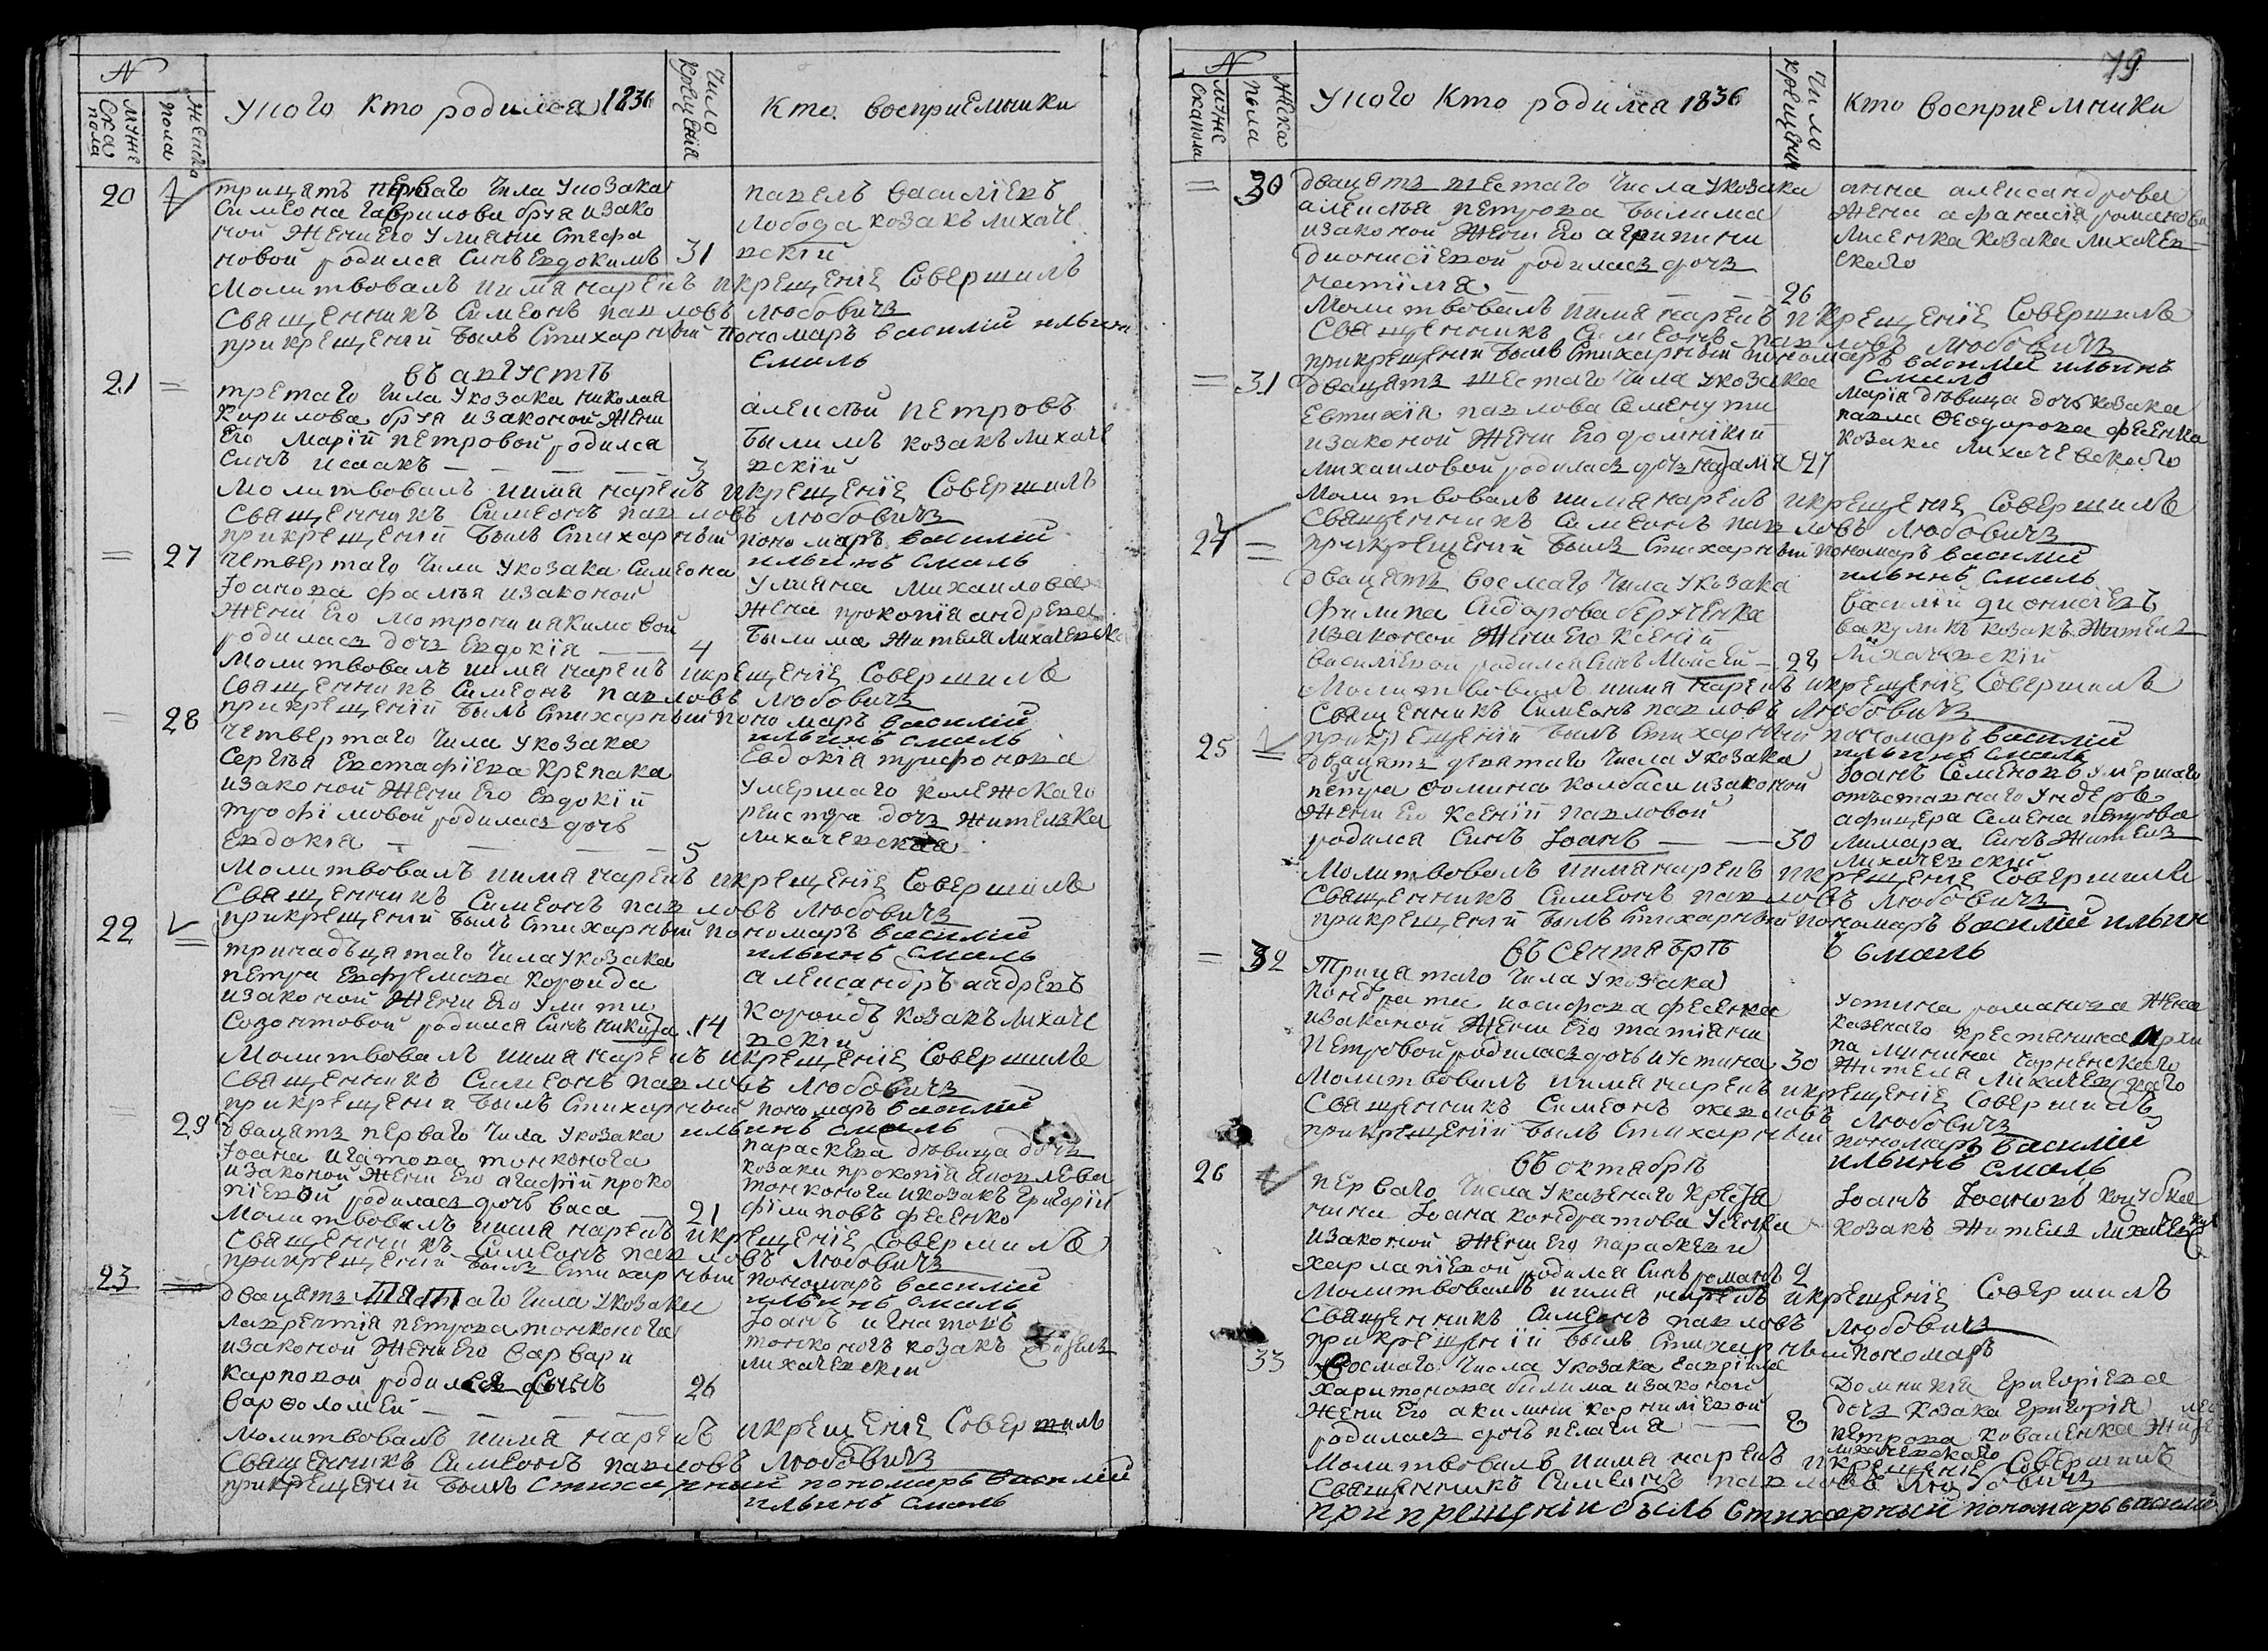 N
Мужеска пола
Женска пола
У кого кто родился 1836
Число крещенія
Кто восприемники
20
тридцать перваго Числа У козака
Симеона гаврилова бруя изако
ной Жени Его Улияни Стефа
новой родился Синъ Евдокимъ 31
павелъ василіевъ
лобода козакъ лихаче
вскій
Молитвовалъ иимя нарекъ икрещеніе Совершилъ
Священникъ Симеонъ павловъ любовичъ
прикрещеній былъ Стихарный пономаръ василій ильинъ
Смаль
въ августѣ
21
третаго Числа У козака николая
Кирилова бруя изаконой Жени
Его Марій петровой родился
Синъ исаакъ 3
алексѣй петровъ
былимъ козакъ лихаче
вскій
Молитвовалъ иимя нарекъ икрещеніе Совершилъ
Священникъ Симеонъ павловъ любовичъ
прикрещеній былъ Стихарный пономаръ василій
ильинъ Смаль
27
четвертаго Числа У козака Симеона
Іоанова фалѣя изаконой
Жени Его мотрони иякимовой
родилась дочь Евдокія 4
Улияна Михаилова
Жена прокопія андрева
былима Жителя лихачевска
Молитвовалъ иимя нарекъ икрещеніе Совершилъ
Священникъ Симеонъ павловъ любовичъ
прикрещеній былъ Стихарный пономаръ василій
ильинъ Смаль
28
четвертаго Числа У козака
Сергѣя Евстафіева Крепака
изаконой Жени Его Евдокіи
трофімовой родилась дочь
Евдокія 5
Евдокія трифонова
умершаго колежскаго
регистра дочь Жителька
лихачевская
Молитвовалъ иимя нарекъ икрещеніе Совершилъ
Священникъ Симеонъ павловъ любовичъ
прикрещеній былъ Стихарный пономаръ василій
ильинъ Смаль
22
тринадъцятаго Числа У козака
петра Евфремова Коровда
изаконой Жени Его Улити
Созонтовой родился Синъ никита 14
александръ андревъ
Коровдъ козакъ лихаче
вскій
Молитвовалъ иимя нарекъ икрещеніе Совершилъ
Священникъ Симеонъ павловъ любовичъ
прикрещеній былъ Стихарный пономаръ василій
ильинъ Смаль
29
двацять перваго Числа У козака
Іоана игатова тонконога
изаконой Жени Его агафій проко
піевой родилась дочь васа 21
параскева дѣвица дочь
козака прокопія яковлева
тонконоги икозакъ григорій
філиповъ фесенко
Молитвовалъ иимя нарекъ икрещеніе Совершилъ
Священникъ Симеонъ павловъ любовичъ
прикрещеній былъ Стихарный пономаръ василій
ильинъ Смаль
23
двацять пятаго Числа У козака
лаврентія петрова тонконога
изаконой Жени Его варвари
карповой родился Синъ
варфоломей 26
Іоанъ игнатовъ
тонконогъ козакъ Житель
лихачевскій
Молитвовалъ иимя нарекъ икрещеніе Совершилъ
Священникъ Симеонъ павловъ любовичъ
прикрещеній былъ Стихарный пономаръ василій
ильинъ Смаль
79
N
Мужескапола
Женска пола
У кого кто родился 1836
Число крещения
кто восприемники
30
двацять шестаго Числа У козака
алексѣя петрова былима
изаконой Жени Его агрипини
дионисіевой родилась дочь
наталія 26
анна александрова
Жена афанасія романова
лисенка козака лихачев
скаго
Молитвовалъ иимя нарекъ икрещеніе Совершилъ
Священникъ Симеонъ павловъ любовичъ
прикрещеній былъ Стихарный пономаръ василій ильинъ
Смаль
31
двацять шестаго Числа У козака
Евтихія павлова Семенути
изаконой Жени Его домникій
Михаиловой родилась дочь наталія 27
Марія дѣвица дочь козака
павла Феодорова фесенка
козака лихачевскаго
Молитвовалъ иимя нарекъ икрещеніе Совершилъ
Священникъ Симеонъ павловъ любовичъ
прикрещеній былъ Стихарный пономаръ василій
ильинъ Смаль
24
двацять восмаго Числа У козака
филипа Сидорова
изаконой Жени Его Ксеній
василіевой родился Синъ Мойсей 28
василій дионисіевъ
вакуликъ козакъ Житель
лихачевскій
Молитвовалъ иимя нарекъ икрещеніе Совершилъ
Священникъ Симеонъ павловъ любовичъ
прикрещеній былъ Стихарный пономаръ василій
ильинъ Смаль
25
двацять девятаго Числа У козака
петра Фомина колбаси изаконой
Жени Его Ксеній павловой
родился Синъ Іоанъ 30
Іоанъ Семеновъ умершаго
отъставнаго ундеръ
афицера Семена петрова
лимара Синъ Житель
лихачевский
Молитвовалъ иимя нарекъ икрещеніе Совершилъ
Священникъ Симеонъ павловъ любовичъ
прикрещеній былъ Стихарный пономаръ василій ильин
ъ Смаль
въ Сентябрѣ
32
Трицятаго Числа У козака
Кондрати иосифова фесенка
изаконой Жени Его татіяни
петровой родилась дочь иустина 30
устина романова Жена
казенаго крестянина архи
па минина
Жителя лихачевскаго
Молитвовалъ иимя нарекъ икрещеніе Совершилъ
Священникъ Симеонъ павловъ любовичъ
прикрещеній былъ Стихарный пономаръ василій
ильинъ Смаль
въ октябрѣ
26
перваго Числа У казенаго крестя
нина Іоана кондратова Усенка
изаконой Жени Его параскеви
харлапіевой родился Синъ романъ 2
Іоанъ Іоановъ
козакъ Житель лихачевск
Молитвовалъ иимя нарекъ икрещеніе Совершилъ
Священникъ Симеонъ павловъ любовичъ
прикрещеній былъ Стихарный пономаръ
33
Восмаго Числа У козака гавріила
харитонова билима изаконой
Жени Его акилини корниліевой
родилась дочь пелагия 8
Домникія григоріева
дочь козака григорія
петрова коваленка Жите
лихачевскаго
Молитвовалъ иимя нарекъ икрещеніе Совершилъ
Священникъ Симеонъ павловъ любовичъ
при крещеніи былъ Стихарный пономаръ василій